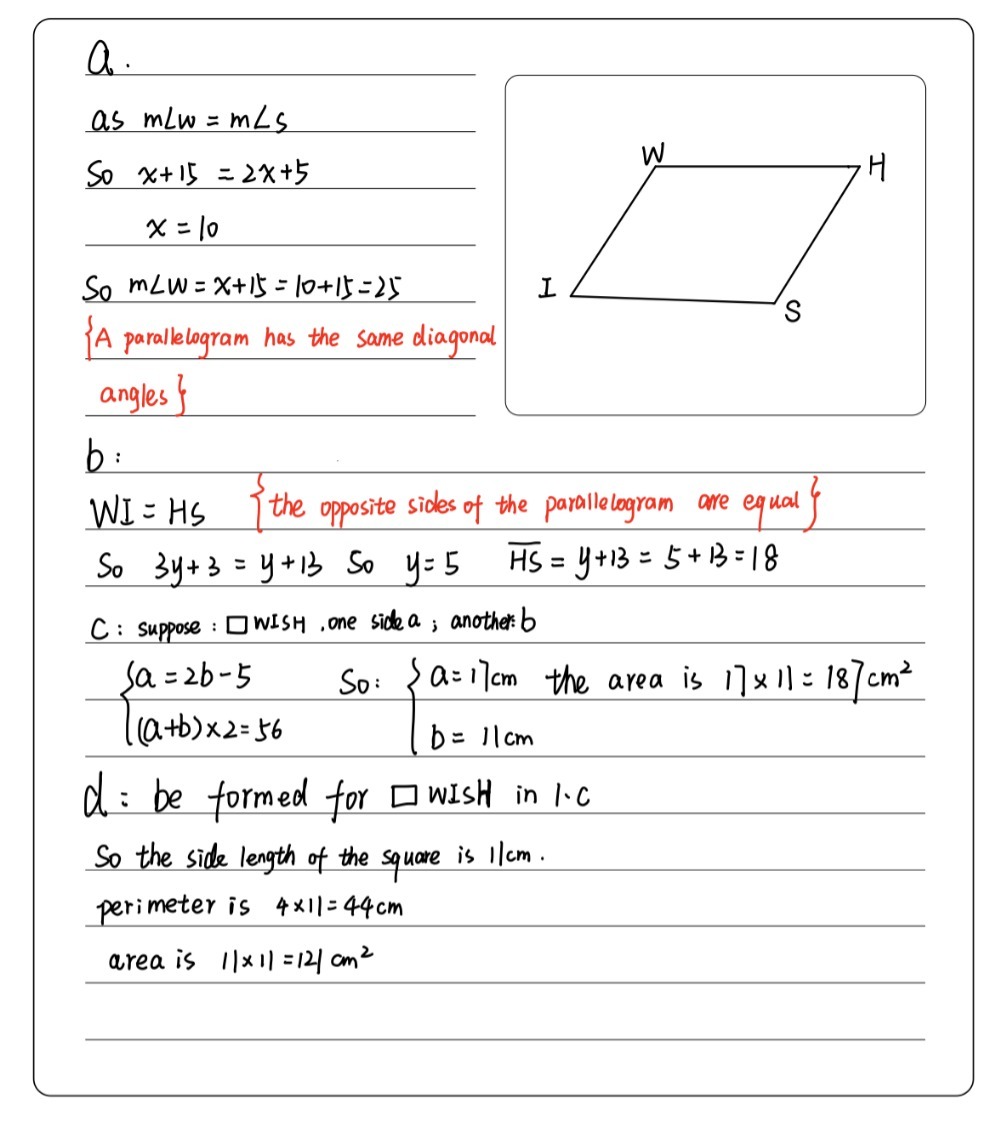 a.
as m∠w = m∠s
So x+15 = 2x+5
x = 10
So m∠W = x+15 = 10+15 = 25
{A parallelogram has the same diagonal
angles}
W
H
I
S
b:
WI = HS {the opposite sides of the parallelogram are equal}
So 3y+3 = y+13 So y=5 H̅S̅ = y+13 = 5+13 = 18
C: suppose: □WISH, one side a; another: b
{a = 2b-5 So: {a=17cm the area is 17×11 = 187cm²
(a+b)×2=56 b = 11cm
d: be formed for □WISH in 1.C
So the side length of the square is 11cm.
perimeter is 4×11=44cm
area is 11×11=121 cm²